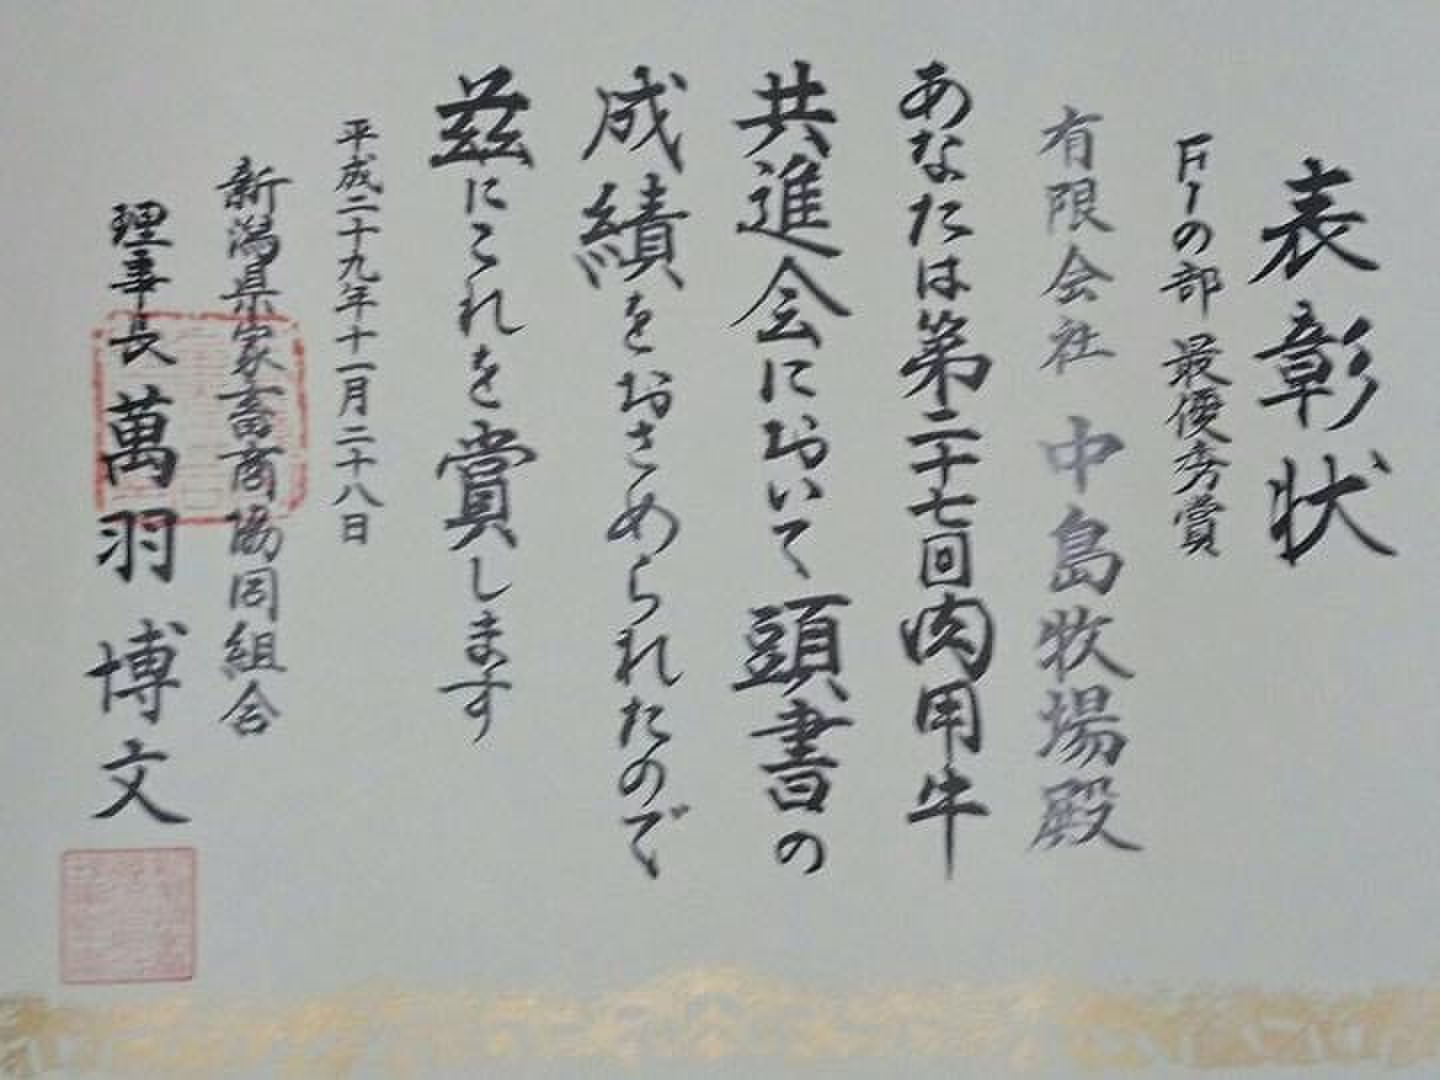 表彰状
F1の部 最優秀賞
有限会社 中島牧場殿
あなたは第二十七回肉用牛
共進会において頭書の
成績をおさめられたので
茲にこれを賞します
平成二十九年十一月二十八日
新潟県家畜商協同組合
理事長 萬羽博文